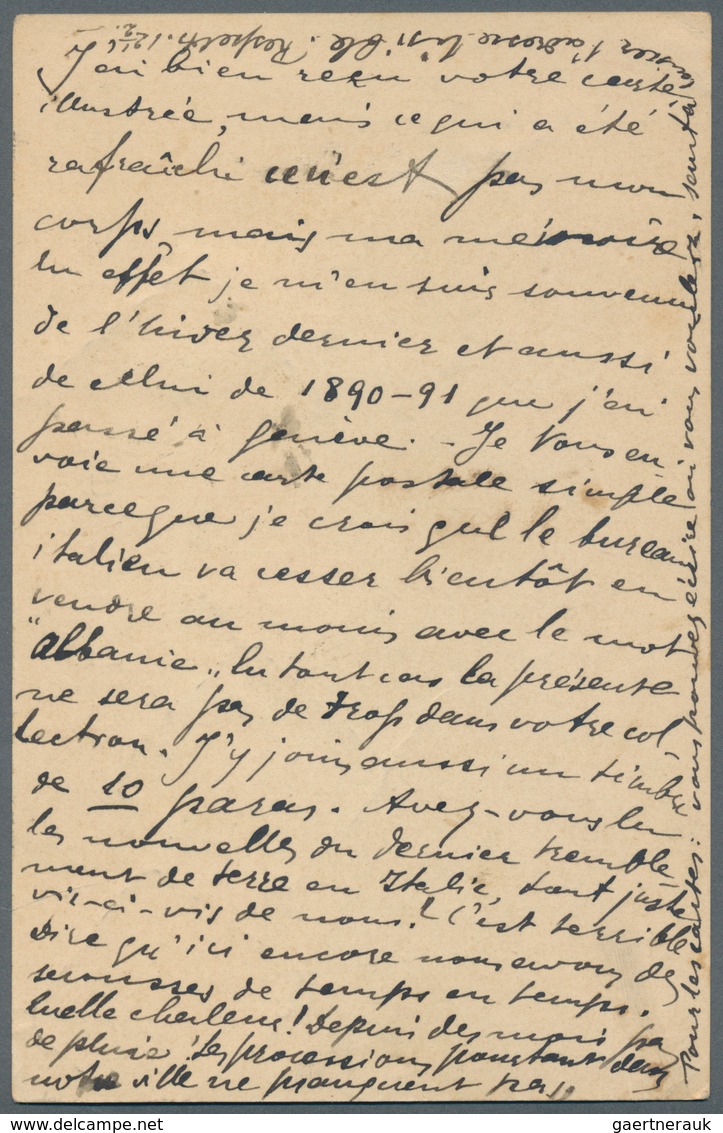 J'ai bien reçu votre carte
illustrée, mais ce qui a été
rafraîchi ce n'est pas mon
corps, mais ma mémoire
En effet je m'en suis souvenu
de l'hiver dernier et aussi
de celui de 1890-91 que j'ai
passé à Genève. - Je vous en
voie une carte postale simple
parceque je crois qul le bureau
italien va cesser bientôt en
vendre au moins avec le mot
"Albanie„ En tout cas la présente
ne sera pas de trop dans votre col
lection. J'y joins aussi un timbre
de 10 paras. Avez-vous lu
les nouvelles du dernier tremble
ment de terre en Italie, tout juste
vis-ci-vis de nous! C'est terrible
Dire qu'ici encore nous avons des
secousses de temps en temps.
Quelle chaleur! Depuis des mois pas
de pluie! Les processions pourtant dans
notre ville ne manquent pas.
Pour les cartes: vous pouvez écrire où vous voulez, sauf à
laisser l'adresse lisible. Respect.
gaertnerauk